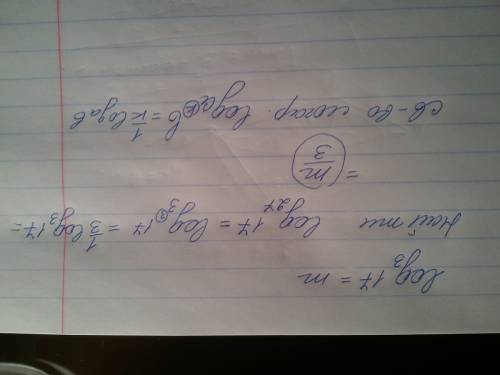 log₃ 17 = m
Найти log₂₇ 17 = log₃③ 17 = 1/3 log₃ 17 =
= m/3
св-во логар. logₐⓚ b = 1/k logₐ b